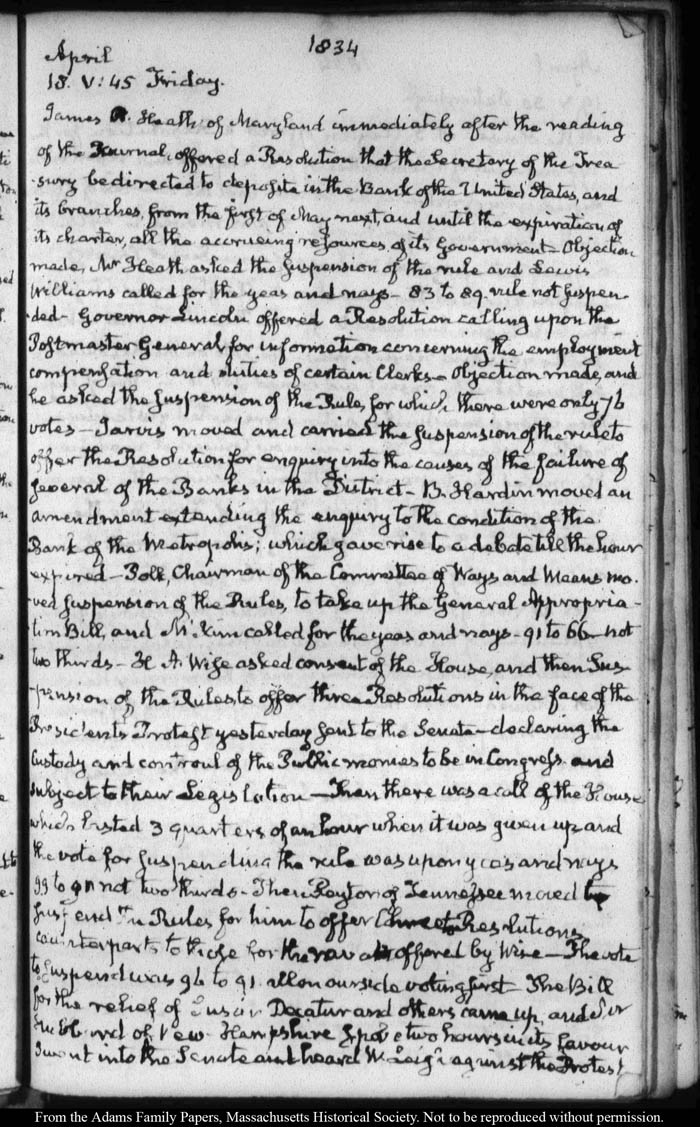 1834
April
18. V: 45 Friday.
James P. Heath of Maryland immediately after the reading
of the Journal, offered a Resolution that the Secretary of the Trea
-sury be directed to deposite in the Bank of the United States, and
its branches, from the first of May next, and until the expiration of
its charter, all the accrueing resources of its Government - Objection
made, Mr Heath asked the suspension of the rule and Lewis
Williams called for the yeas and nays - 83 to 89. rule not suspen
-ded - Governor Lincoln offered a Resolution calling upon the
Postmaster General for information concerning the employment
compensation and duties of certain Clerks - Objection made, and
he asked the suspension of the Rule, for which there were only 76
votes - Jarvis moved and carried the suspension of the rule to
offer the Resolution for enquiry into the causes of the failure of
several of the Banks in the District - B. Hardin moved an
amendment extending the enquiry to the condition of the
Bank of the Metropolis; which gave rise to a debate till the hour
expired - Polk, Chairman of the Committee of Ways and Means mo.
-ved suspension of the Rules, to take up the General Appropria-
tion Bill, and McKim called for the yeas and nays - 91 to 66 - not
two thirds - H. A. Wise asked consent of the House, and then sus
-pension of the Rules to offer three Resolutions in the face of the
Presidents Protest yesterday sent to the Senate - declaring the
Custody and controul of the Public monies to be in Congress and
subject to their Legislation - Then there was a call of the House
which lasted 3 quarters of an hour when it was given up and
the vote for suspending the rule was upon yeas and nays
99 to not two thirds - Then Peyton of Tennessee moved to
suspend the Rules for him to offer Resolutions
counterparts to those offered by Wise - The vote
to suspend was 96 to 91. all on our side voting first - The Bill
for the relief of Susan Decatur and others came up, and
Hubbard of New-Hampshire spoke two hours in its favour
I went into the Senate and heard W. Leigh against the Protest
From the Adams Family Papers, Massachusetts Historical Society. Not to be reproduced without permission.